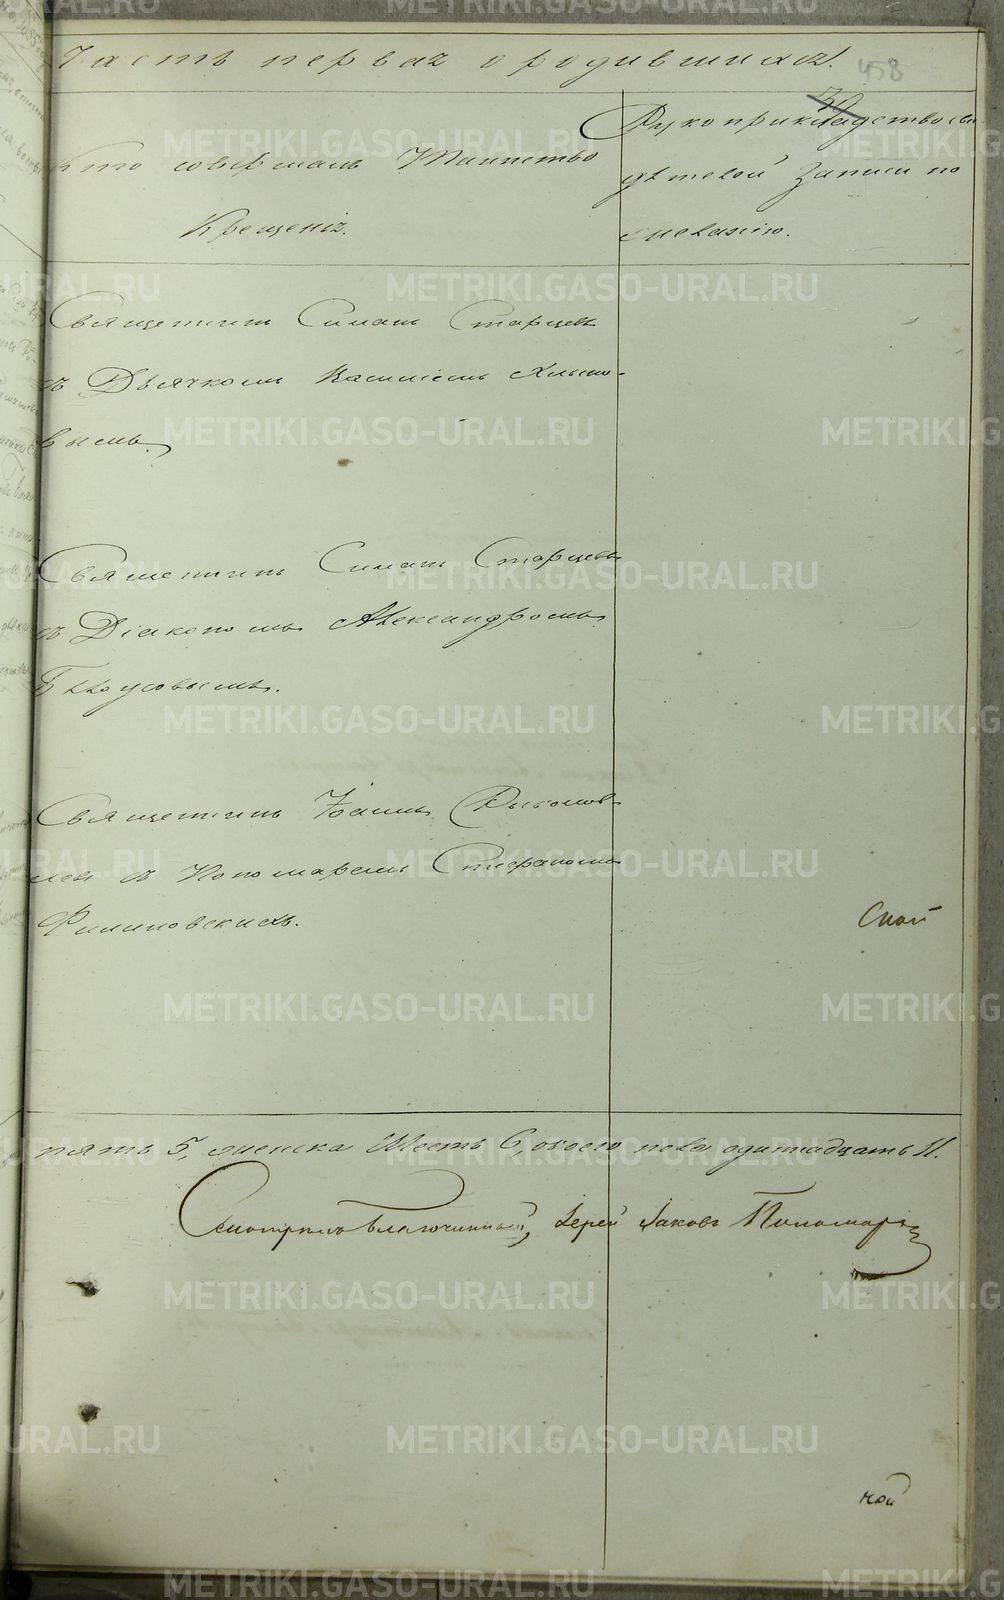 Часть первая о родившихся.
458
39
Кто совершалъ Таинство
Крещенія.
Рукоприкладство сви
дѣтелей записи по
желанію.
Священникъ Симонъ Старцевъ
съ Дьячкомъ Василіемъ Хлыно-
вымъ.
Священникъ Симонъ Старцевъ
съ Діакономъ Александромъ
Бѣлоусовымъ.
Священникъ Іоаннъ
съ Пономаремъ Стефаномъ
Филиповскихъ.
пять 5, женска Шесть 6, обоего пола одиннадцать 11.
Смотрѣлъ благочинный, Іерей Іаковъ Пономаревъ
ной
METRIKI.GASO-URAL.RU